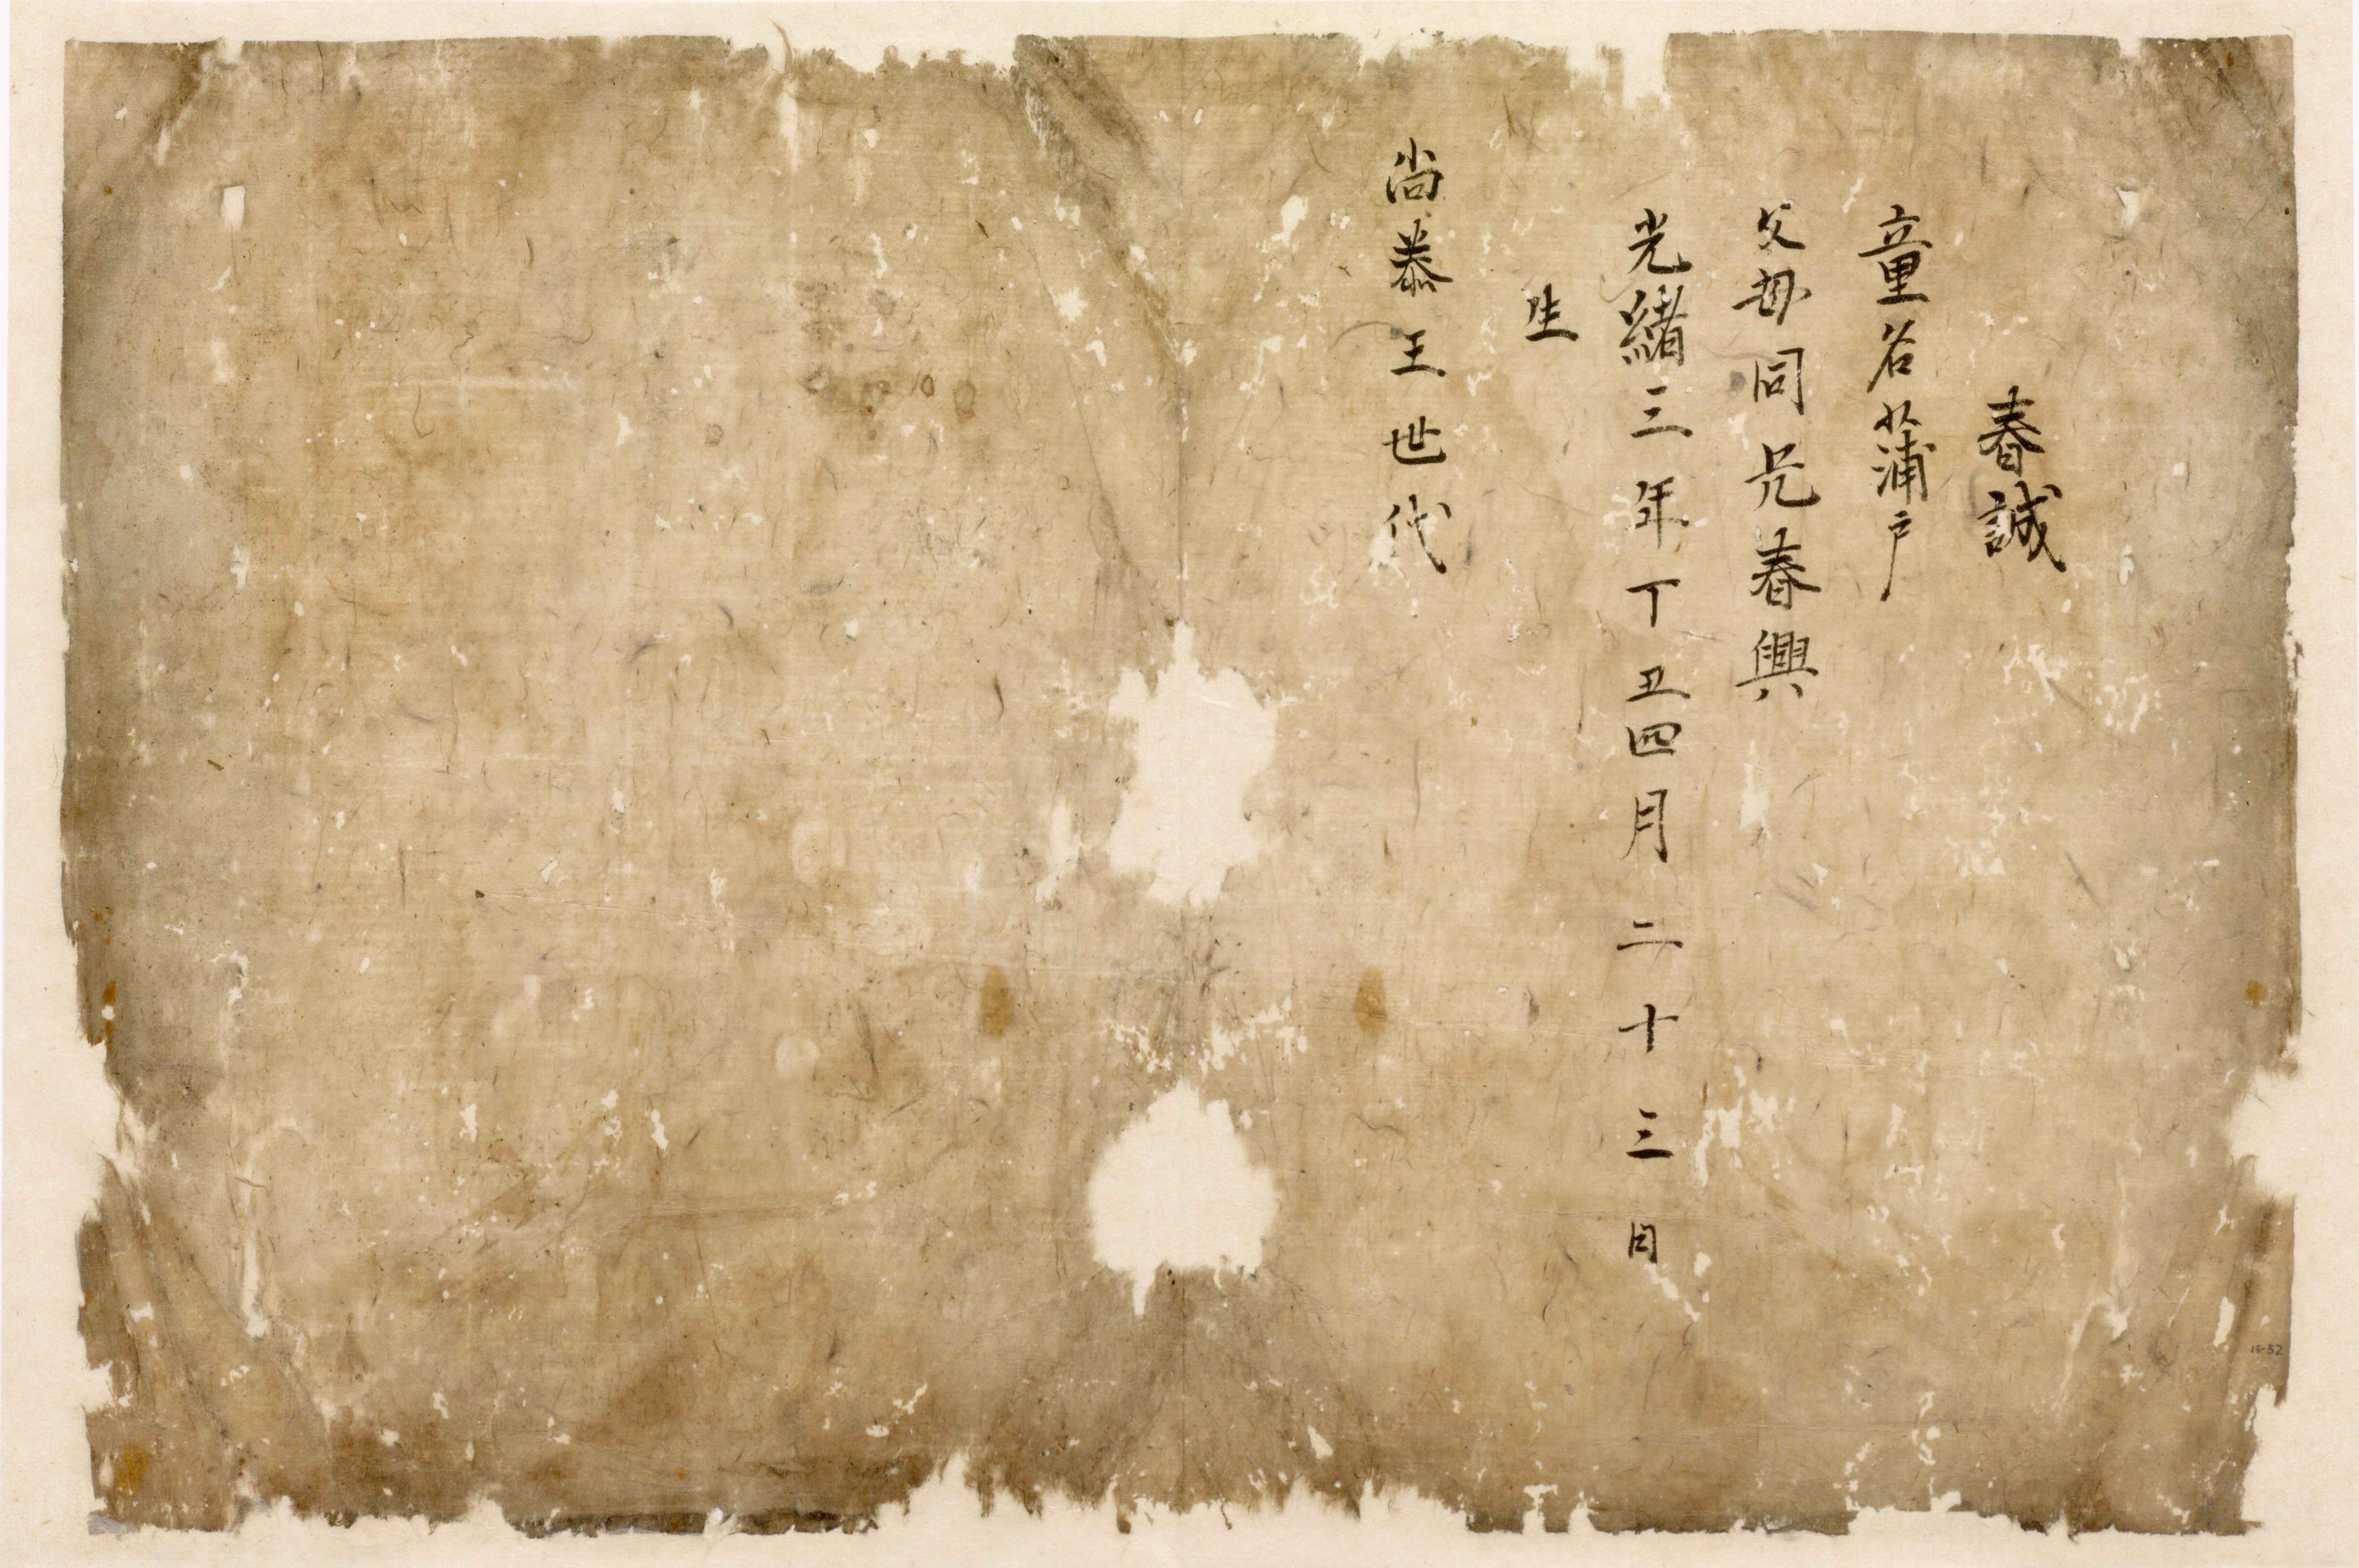 春誠
童名蒲戸
父母同兄春興
光緒三年丁丑四月二十三日
生
尚泰王世代
13-52